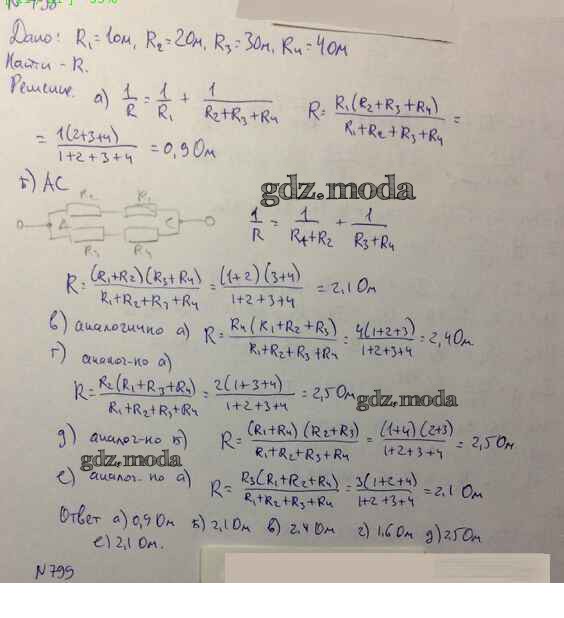 Дано: R₁=1Ом, R₂=2Ом, R₃=3Ом, R₄=4Ом
Найти - R.
Решение. а) 1/R = 1/R₁ + 1/(R₂+R₃+R₄) R = R₁(R₂+R₃+R₄)/(R₁+R₂+R₃+R₄) =
= 1(2+3+4)/(1+2+3+4) = 0,9Ом
б) АС
gdz.moda
A C
1/R = 1/(R₁+R₂) + 1/(R₃+R₄)
R = (R₁+R₂)(R₃+R₄)/(R₁+R₂+R₃+R₄) = (1+2)(3+4)/(1+2+3+4) = 2,1 Ом
в) аналогично а) R = R₄(R₁+R₂+R₃)/(R₁+R₂+R₃+R₄) = 4(1+2+3)/(1+2+3+4) = 2,4Ом
г) аналог-но а)
R = R₂(R₁+R₃+R₄)/(R₁+R₂+R₃+R₄) = 2(1+3+4)/(1+2+3+4) = 2,5Ом
gdz.moda
д) аналог-но б) R = (R₁+R₄)(R₂+R₃)/(R₁+R₂+R₃+R₄) = (1+4)(2+3)/(1+2+3+4) = 2,5Ом
gdz.moda
е) аналог-но а) R = R₃(R₁+R₂+R₄)/(R₁+R₂+R₃+R₄) = 3(1+2+4)/(1+2+3+4) = 2,1 Ом
Ответ а) 0,9 Ом б) 2,1 Ом в) 2,4 Ом г) 1,6 Ом д) 2,5 Ом
е) 2,1 Ом.
N 799